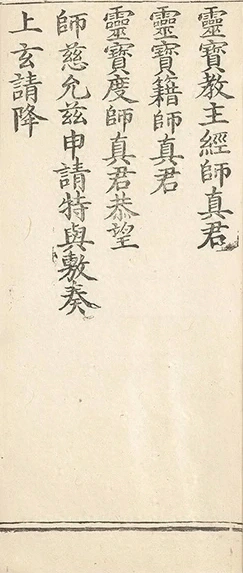 靈寶教主經師真君
靈寶籍師真君
靈寶度師真君恭望
師慈允茲申請特與敷奏
上玄請降